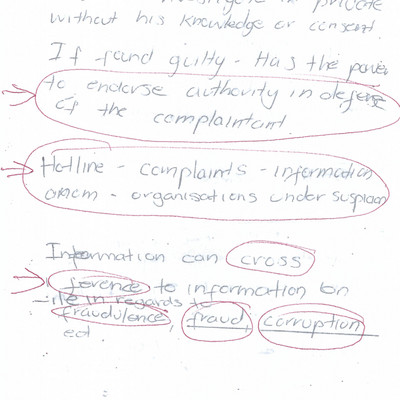 in private
without his knowledge or consent.
If found guilty - Has the power
to endorse authority in defense
of the complaintant.
Hotline - complaints - information
- organisations under suspicion
Information can cross
ference to information on
file in regards to
fraudulence, fraud, corruption
ect.